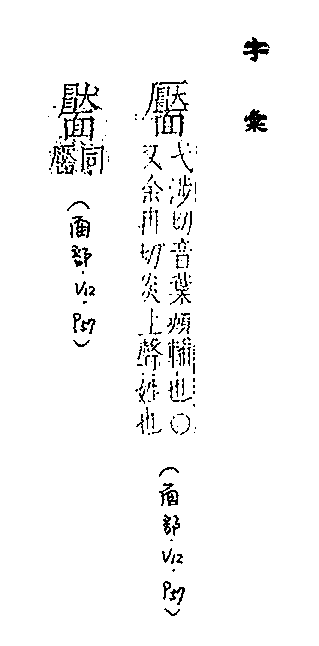 字彙
靨
弋涉切音葉頰輔也〇
又余冉切炎上聲姓也
(面部·V12·P57)
同靨
(面部·V12·P57)